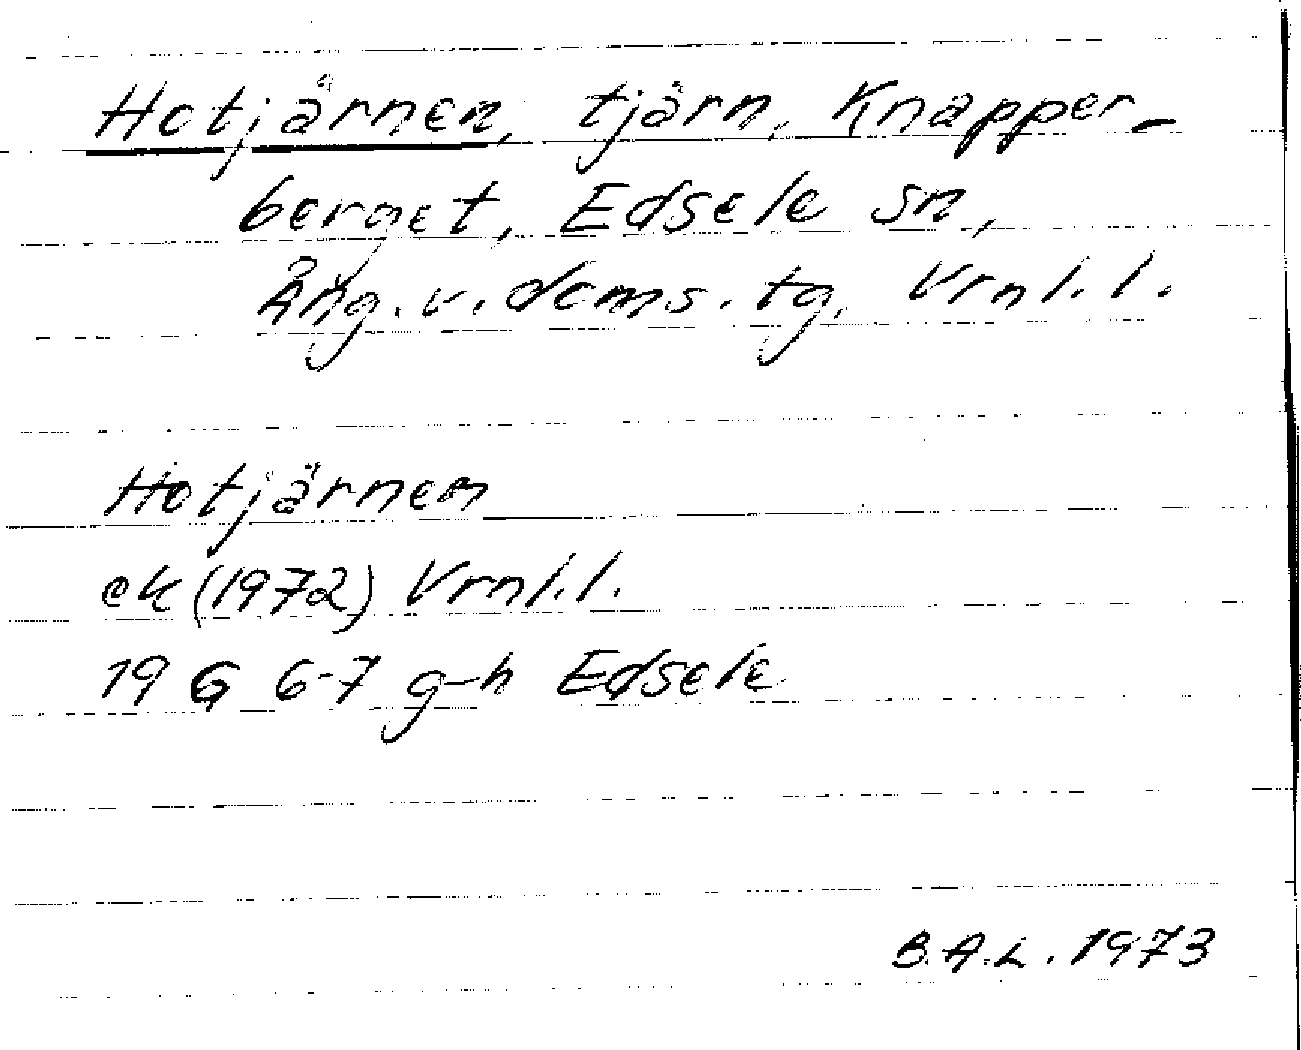 Hotjärnen, tjärn, Knapper-
berget, Edsele sn,
Ång. v. doms. tg, Vrnl. l.
Hotjärnen
ek (1972) Vrnl. l.
19 G 6-7 g-h Edsele
B.A.L. 1973